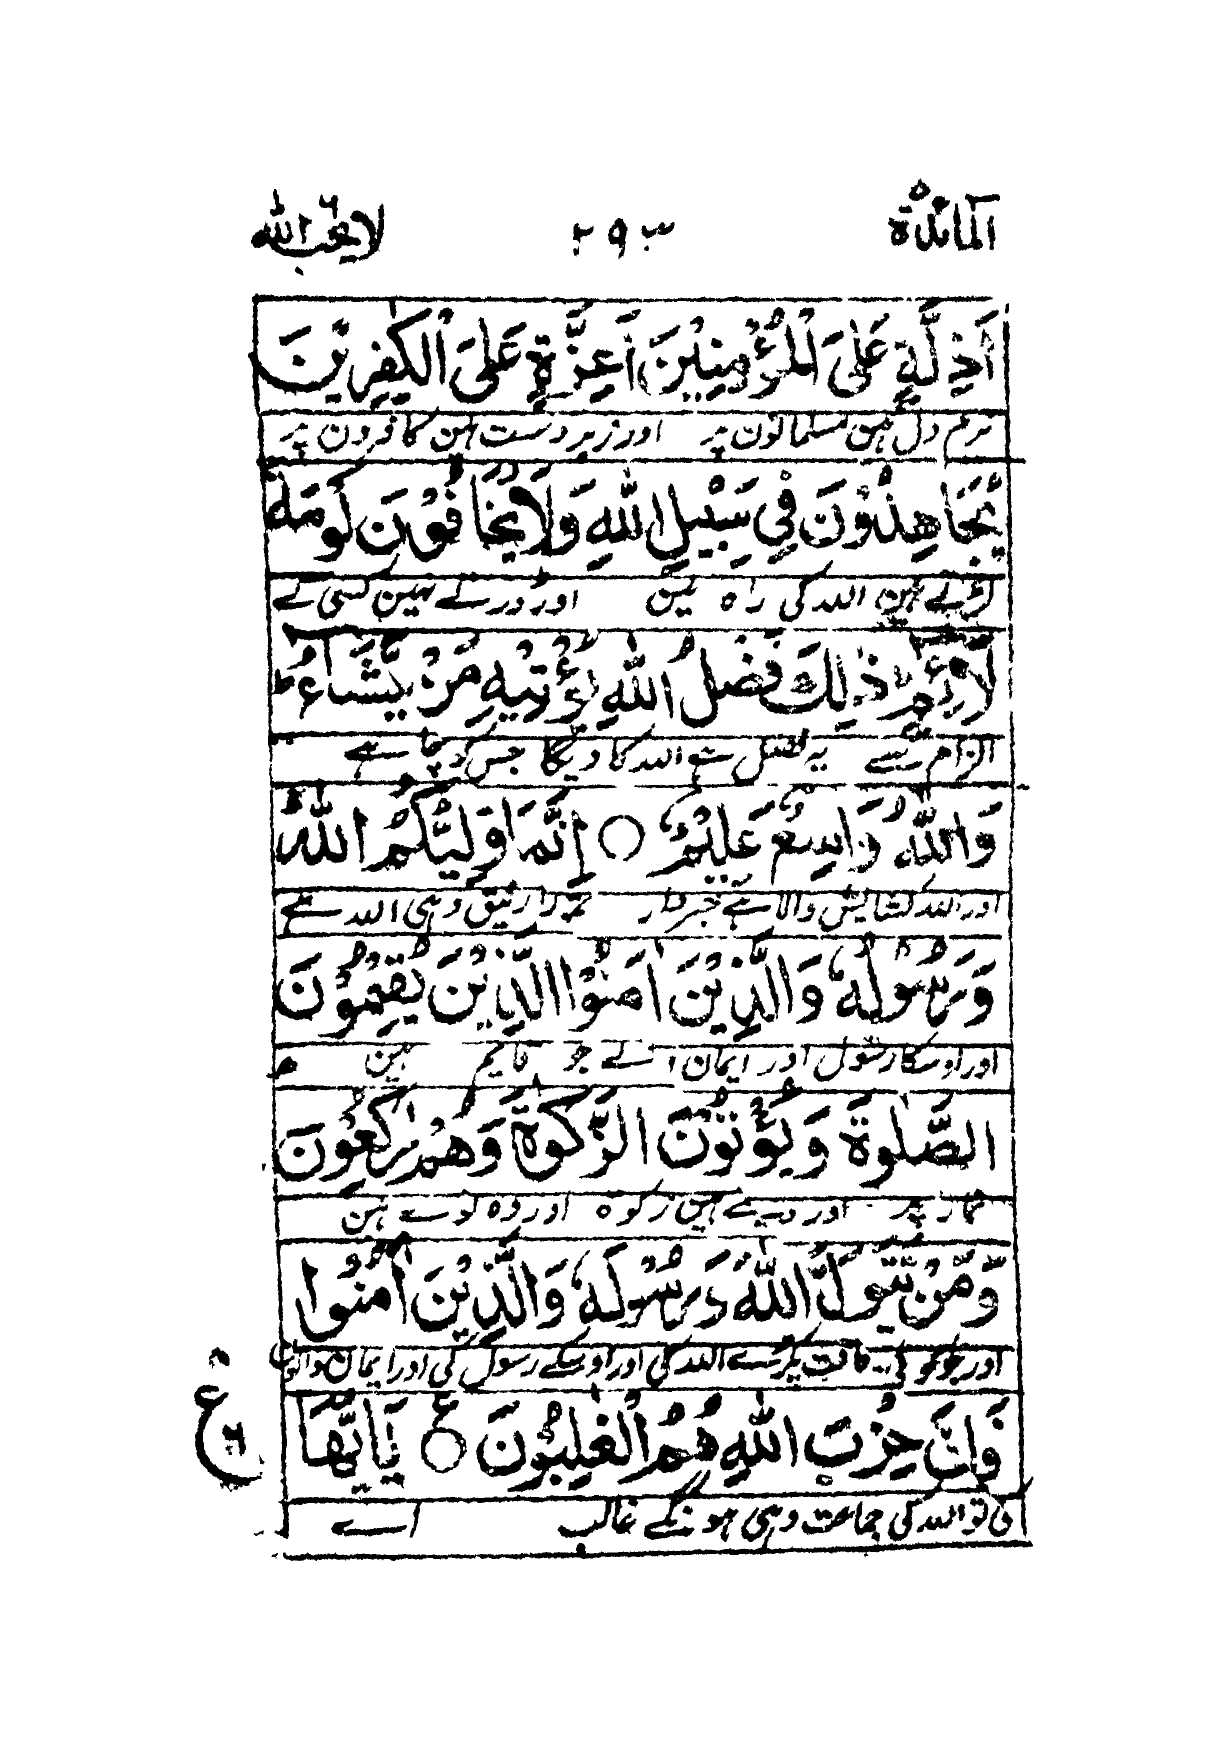 المائدة ٥ ٢٩٣ لا يحب الله ٦
اَذِلَّةٍ عَلَى الْمُؤْمِنِيْنَ اَعِزَّةٍ عَلَى الْكٰفِرِيْنَ
نرم دل ہین مسلمانون پر اور زبردست ہین کافرون پر
يُجَاهِدُوْنَ فِيْ سَبِيْلِ اللّٰهِ وَلَا يَخَافُوْنَ لَوْمَةَ
لڑتے ہین اللہ کی راہ مین اور ڈرتے نہین کسی کے
لَآئِمٍ ذٰلِكَ فَضْلُ اللّٰهِ يُؤْتِيْهِ مَنْ يَّشَآءُ ط
الزام سے یہ فضل ہے اللہ کا دیگا جس کو چاہے
وَاللّٰهُ وَاسِعٌ عَلِيْمٌ ○ اِنَّمَا وَلِيُّكُمُ اللّٰهُ
اور اللہ کشایش والا ہے خبردار تمہارا رفیق وہی اللہ ہے
وَرَسُوْلُهٗ وَالَّذِيْنَ اٰمَنُوا الَّذِيْنَ يُقِيْمُوْنَ
اور اوسکا رسول اور ایمان والے جو قایم ہین
الصَّلٰوةَ وَيُؤْتُوْنَ الزَّكٰوةَ وَهُمْ رٰكِعُوْنَ
نماز پر اور دیتے ہین زکوة اور وہ نوے ہین
وَمَنْ يَّتَوَلَّ اللّٰهَ وَرَسُوْلَهٗ وَالَّذِيْنَ اٰمَنُوْا
اور جو کوئی رفاقت پکڑے اللہ کی اور اوسکے رسول کی اور ایمان والون
فَاِنَّ حِزْبَ اللّٰهِ هُمُ الْغٰلِبُوْنَ ○ ع يٰٓاَيُّهَا
کی تو اللہ کی جماعت وہی ہونگے غالب اے
ع